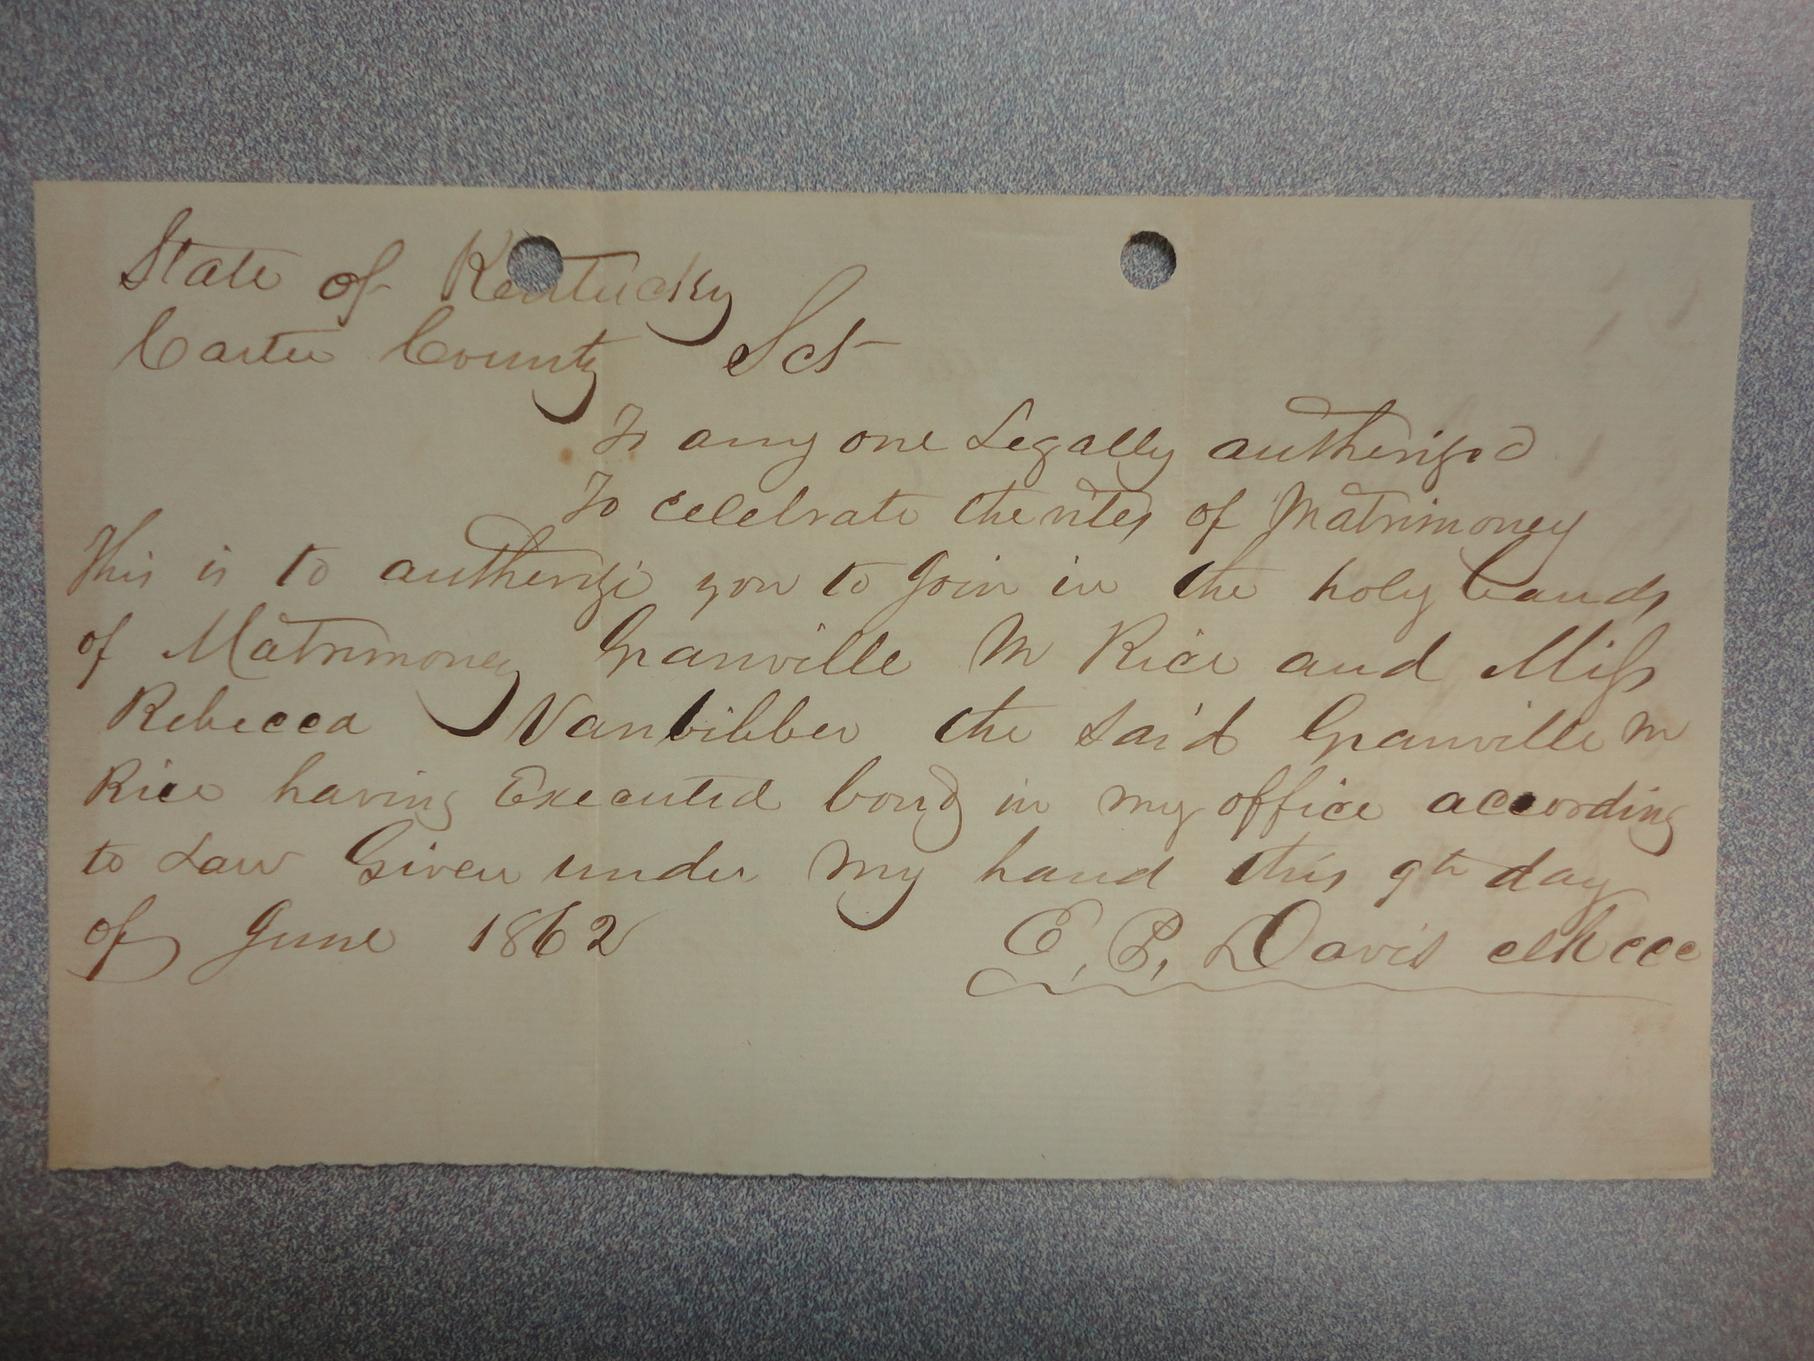 State of Kentucky
Carter County Sct
To any one Legally autherized
To celebrate the rites of Matrimoney
This is to autherize you to Join in the holy bands
of Matrimoney Granville M Rice and Miss
Rebecca Vanbibber the said Granville M
Rice having Executed bond in my office according
to Law Given under my hand this 9th day
of June 1862 E. P. Davis clk ccc